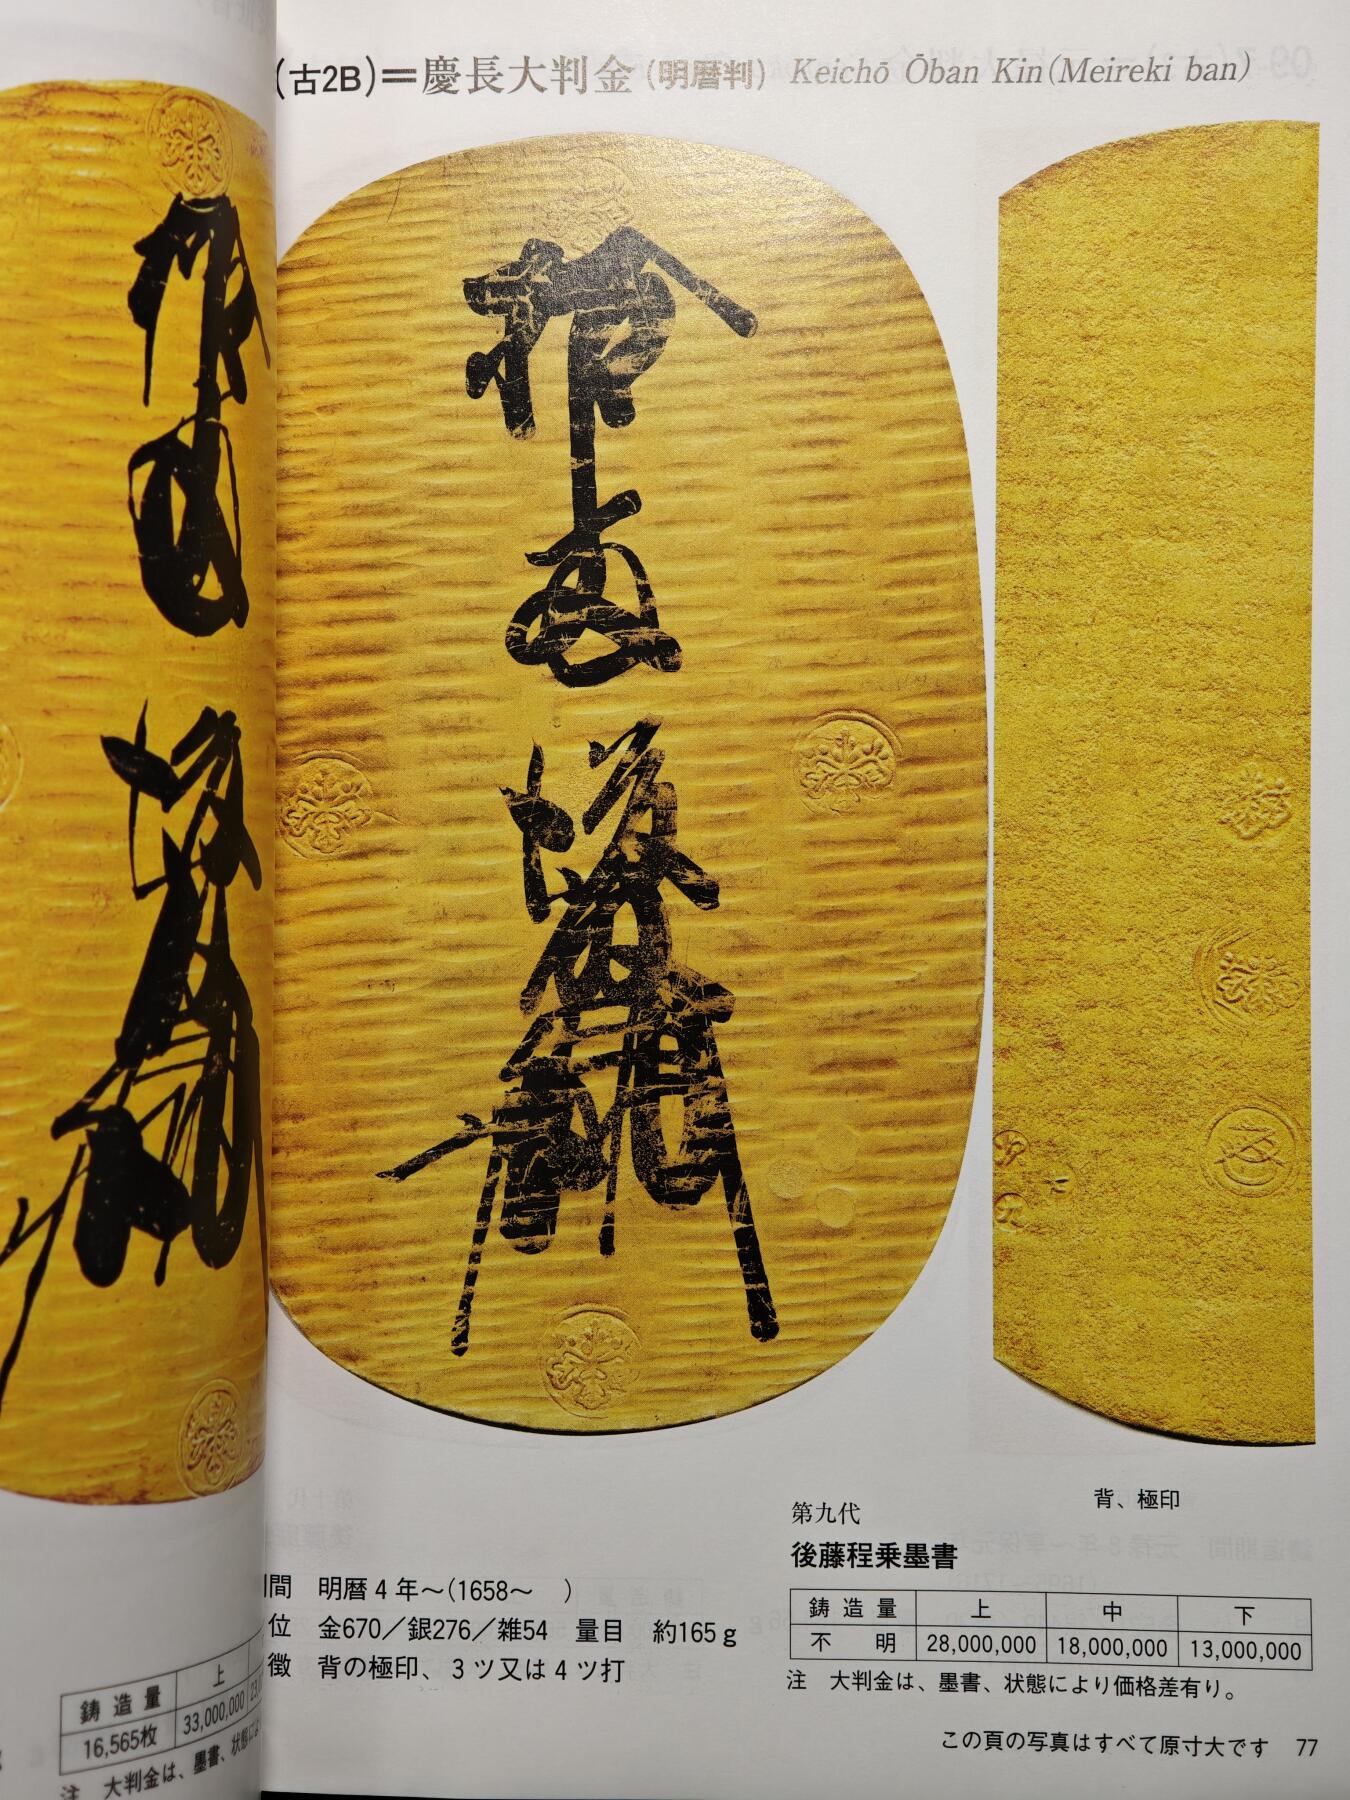 (古2B)=慶長大判金(明暦判) Keichō Ōban Kin(Meireki ban)
背、極印
第九代
後藤程乗墨書
間 明暦4年~(1658~ )
位 金670/銀276/雑54 量目 約165g
徴 背の極印、3ツ又は4ツ打
鋳造量 上 中 下
不明 28,000,000 18,000,000 13,000,000
注 大判金は、墨書、状態により価格差有り。
この頁の写真はすべて原寸大です 77
鋳造量 上
16,565枚 33,000,000
注 大判金は、墨書、状態に